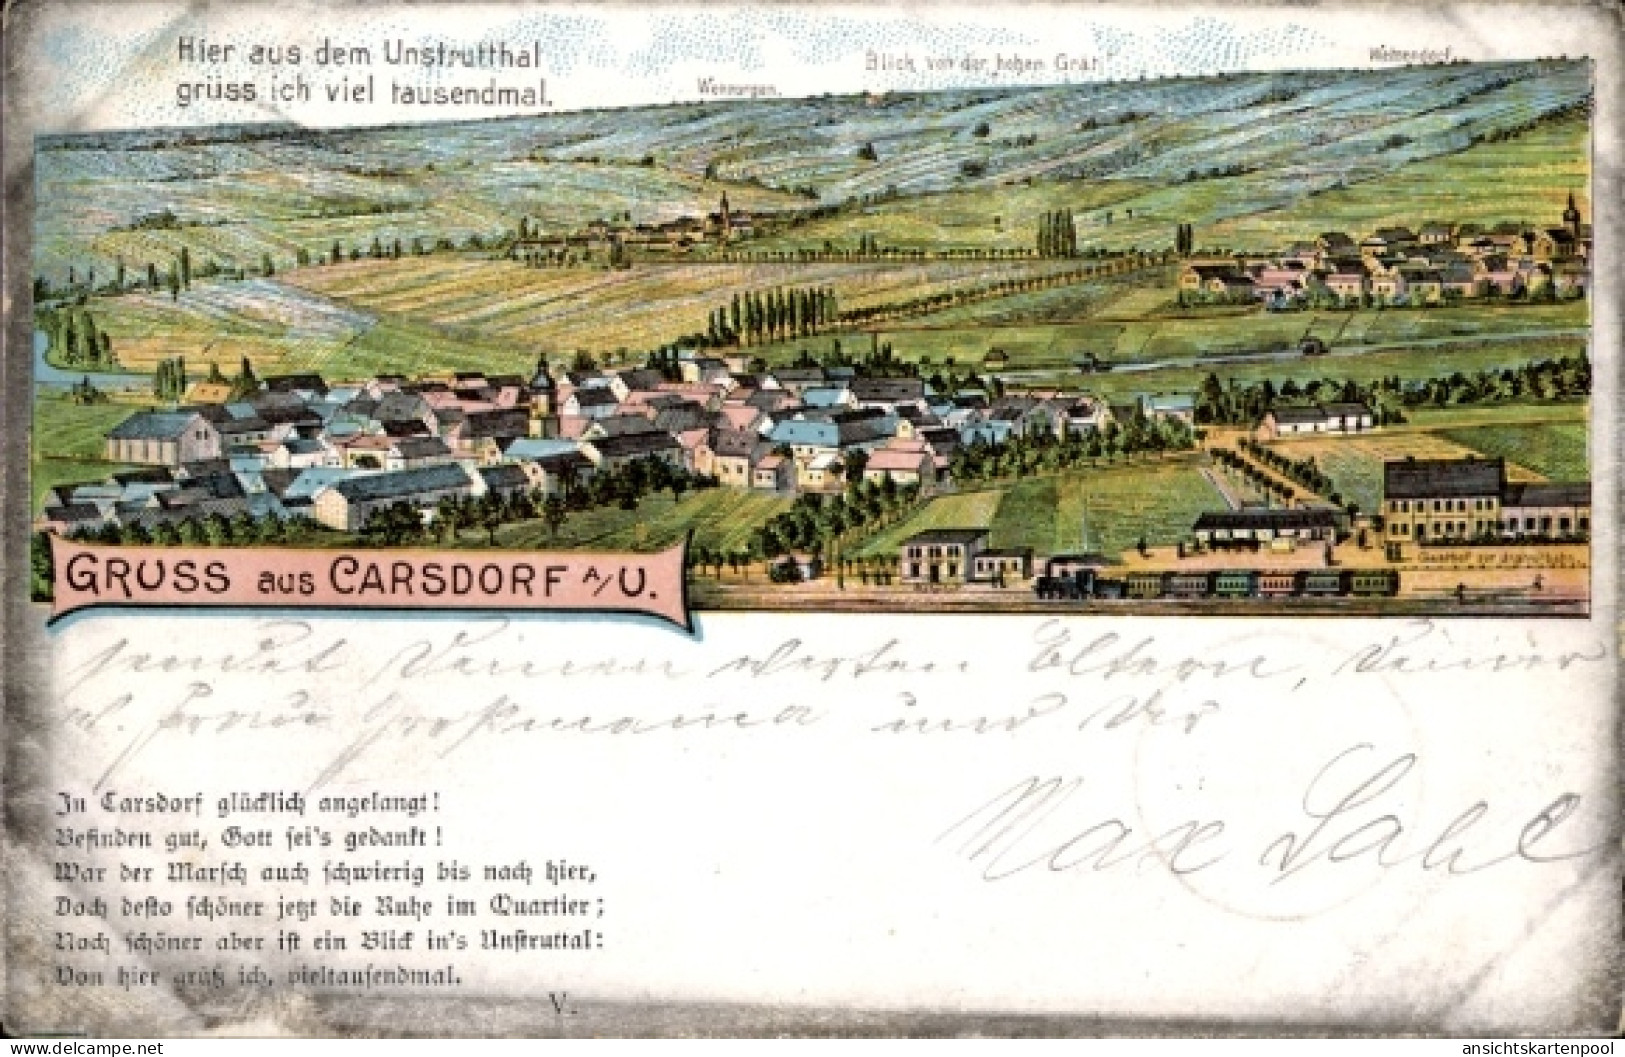 Hier aus dem Unstrutthal
grüss ich viel tausendmal.
Blick von der hohen Grät
Wennungen.
GRUSS aus CARSDORF A/U.
Gasthof zur
sendet Deinen werten Eltern, Deiner
w. Frau Großmama und Dir
Max
In Carsdorf glücklich angelangt!
Befinden gut, Gott sei's gedankt!
War der Marsch auch schwierig bis nach hier,
Doch desto schöner jetzt die Ruhe im Quartier;
Noch schöner aber ist ein Blick in's Unstruttal:
Von hier grüß ich, vieltausendmal.
V.
www.delcampe.net
ansichtskartenpool